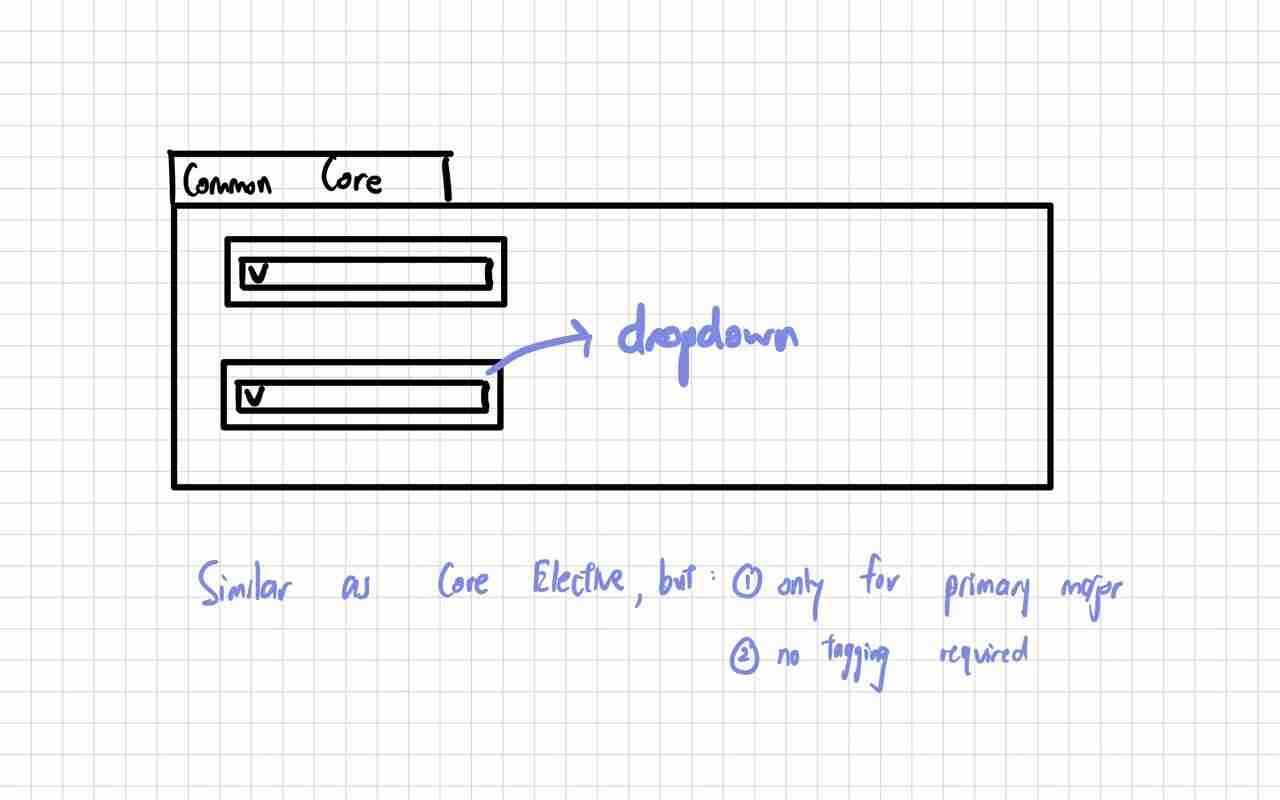 Common Core
V
dropdown
V
Similar as Core Elective, but: ① only for primary major
② no tagging required